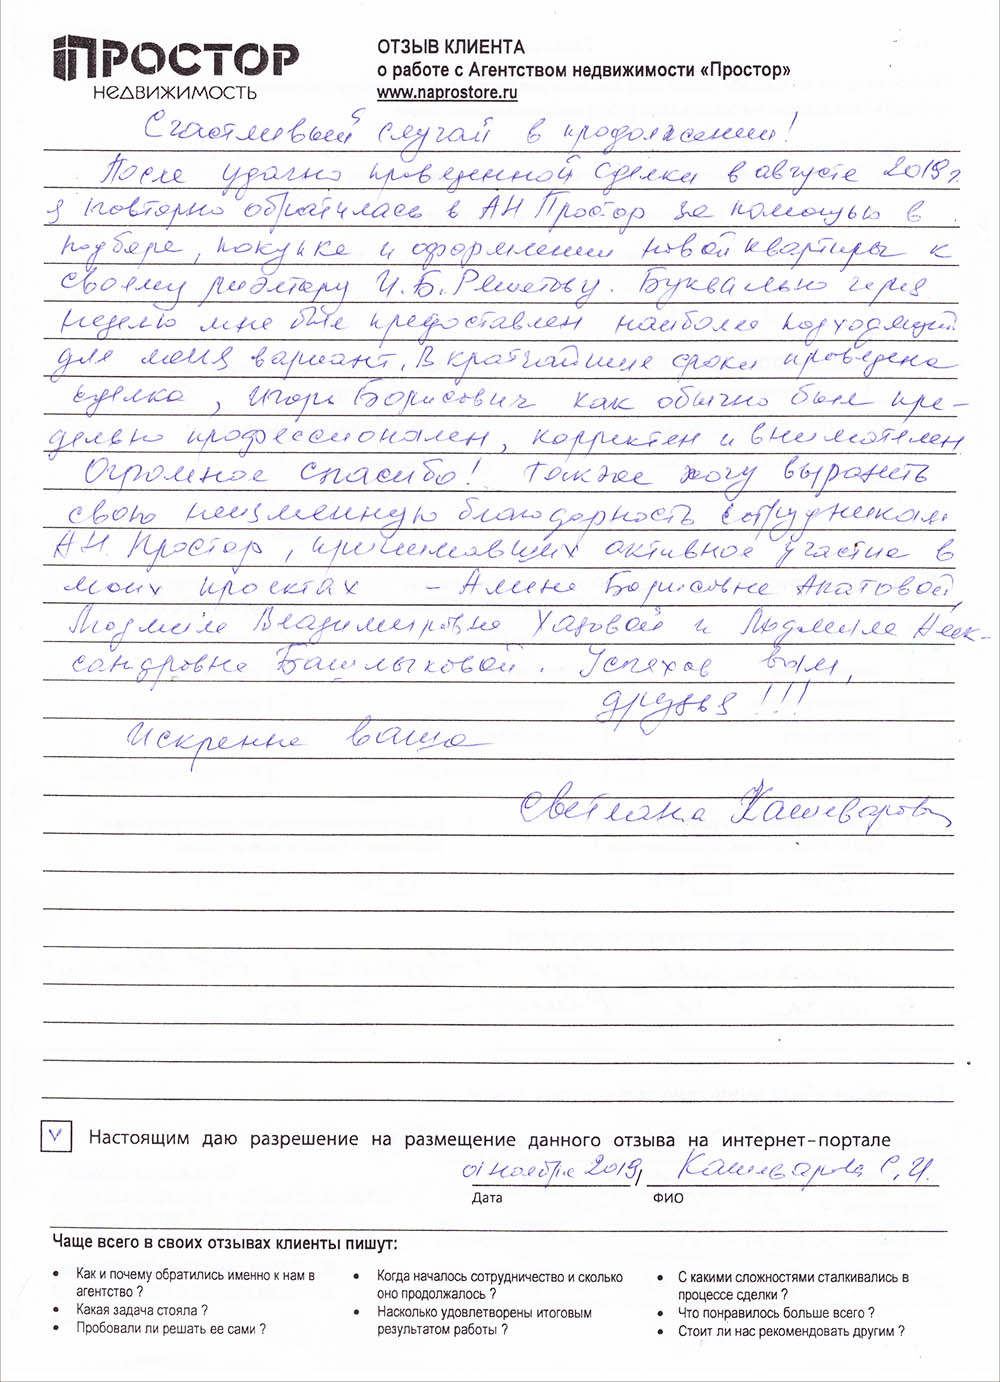 ПРОСТОР
НЕДВИЖИМОСТЬ
ОТЗЫВ КЛИЕНТА
о работе с Агентством недвижимости «Простор»
www.naprostore.ru
Счастливый случай в продолжении!
После удачно проведенной сделки в августе 2019 г
я повторно обратилась в АН Простор за помощью в
подборе, покупке и оформлении новой квартиры к
своему риэлтору И.Б. Решетову. Буквально через
неделю мне был предоставлен наиболее подходящий
для меня вариант. В кратчайшие сроки проведена
сделка, Игорь Борисович как обычно был пре-
дельно профессионален, корректен и внимателен
Огромное спасибо! Также хочу выразить
свою неизменную благодарность сотрудникам
АН Простор, принимавших активное участие в
моих проектах - Алине Борисовне Апатовой,
Людмиле Владимировне Хазовой и Людмиле Алек-
сандровне Башлыковой. Успехов вам,
друзья!!!
Искренне ваша
Светлана Кашеварова
V Настоящим даю разрешение на размещение данного отзыва на интернет-портале
01 ноября 2019, Кашеварова С.И.
Дата ФИО
Чаще всего в своих отзывах клиенты пишут:
• Как и почему обратились именно к нам в
агентство ?
• Какая задача стояла ?
• Пробовали ли решать ее сами ?
• Когда началось сотрудничество и сколько
оно продолжалось ?
• Насколько удовлетворены итоговым
результатом работы ?
• С какими сложностями сталкивались в
процессе сделки ?
• Что понравилось больше всего ?
• Стоит ли нас рекомендовать другим ?